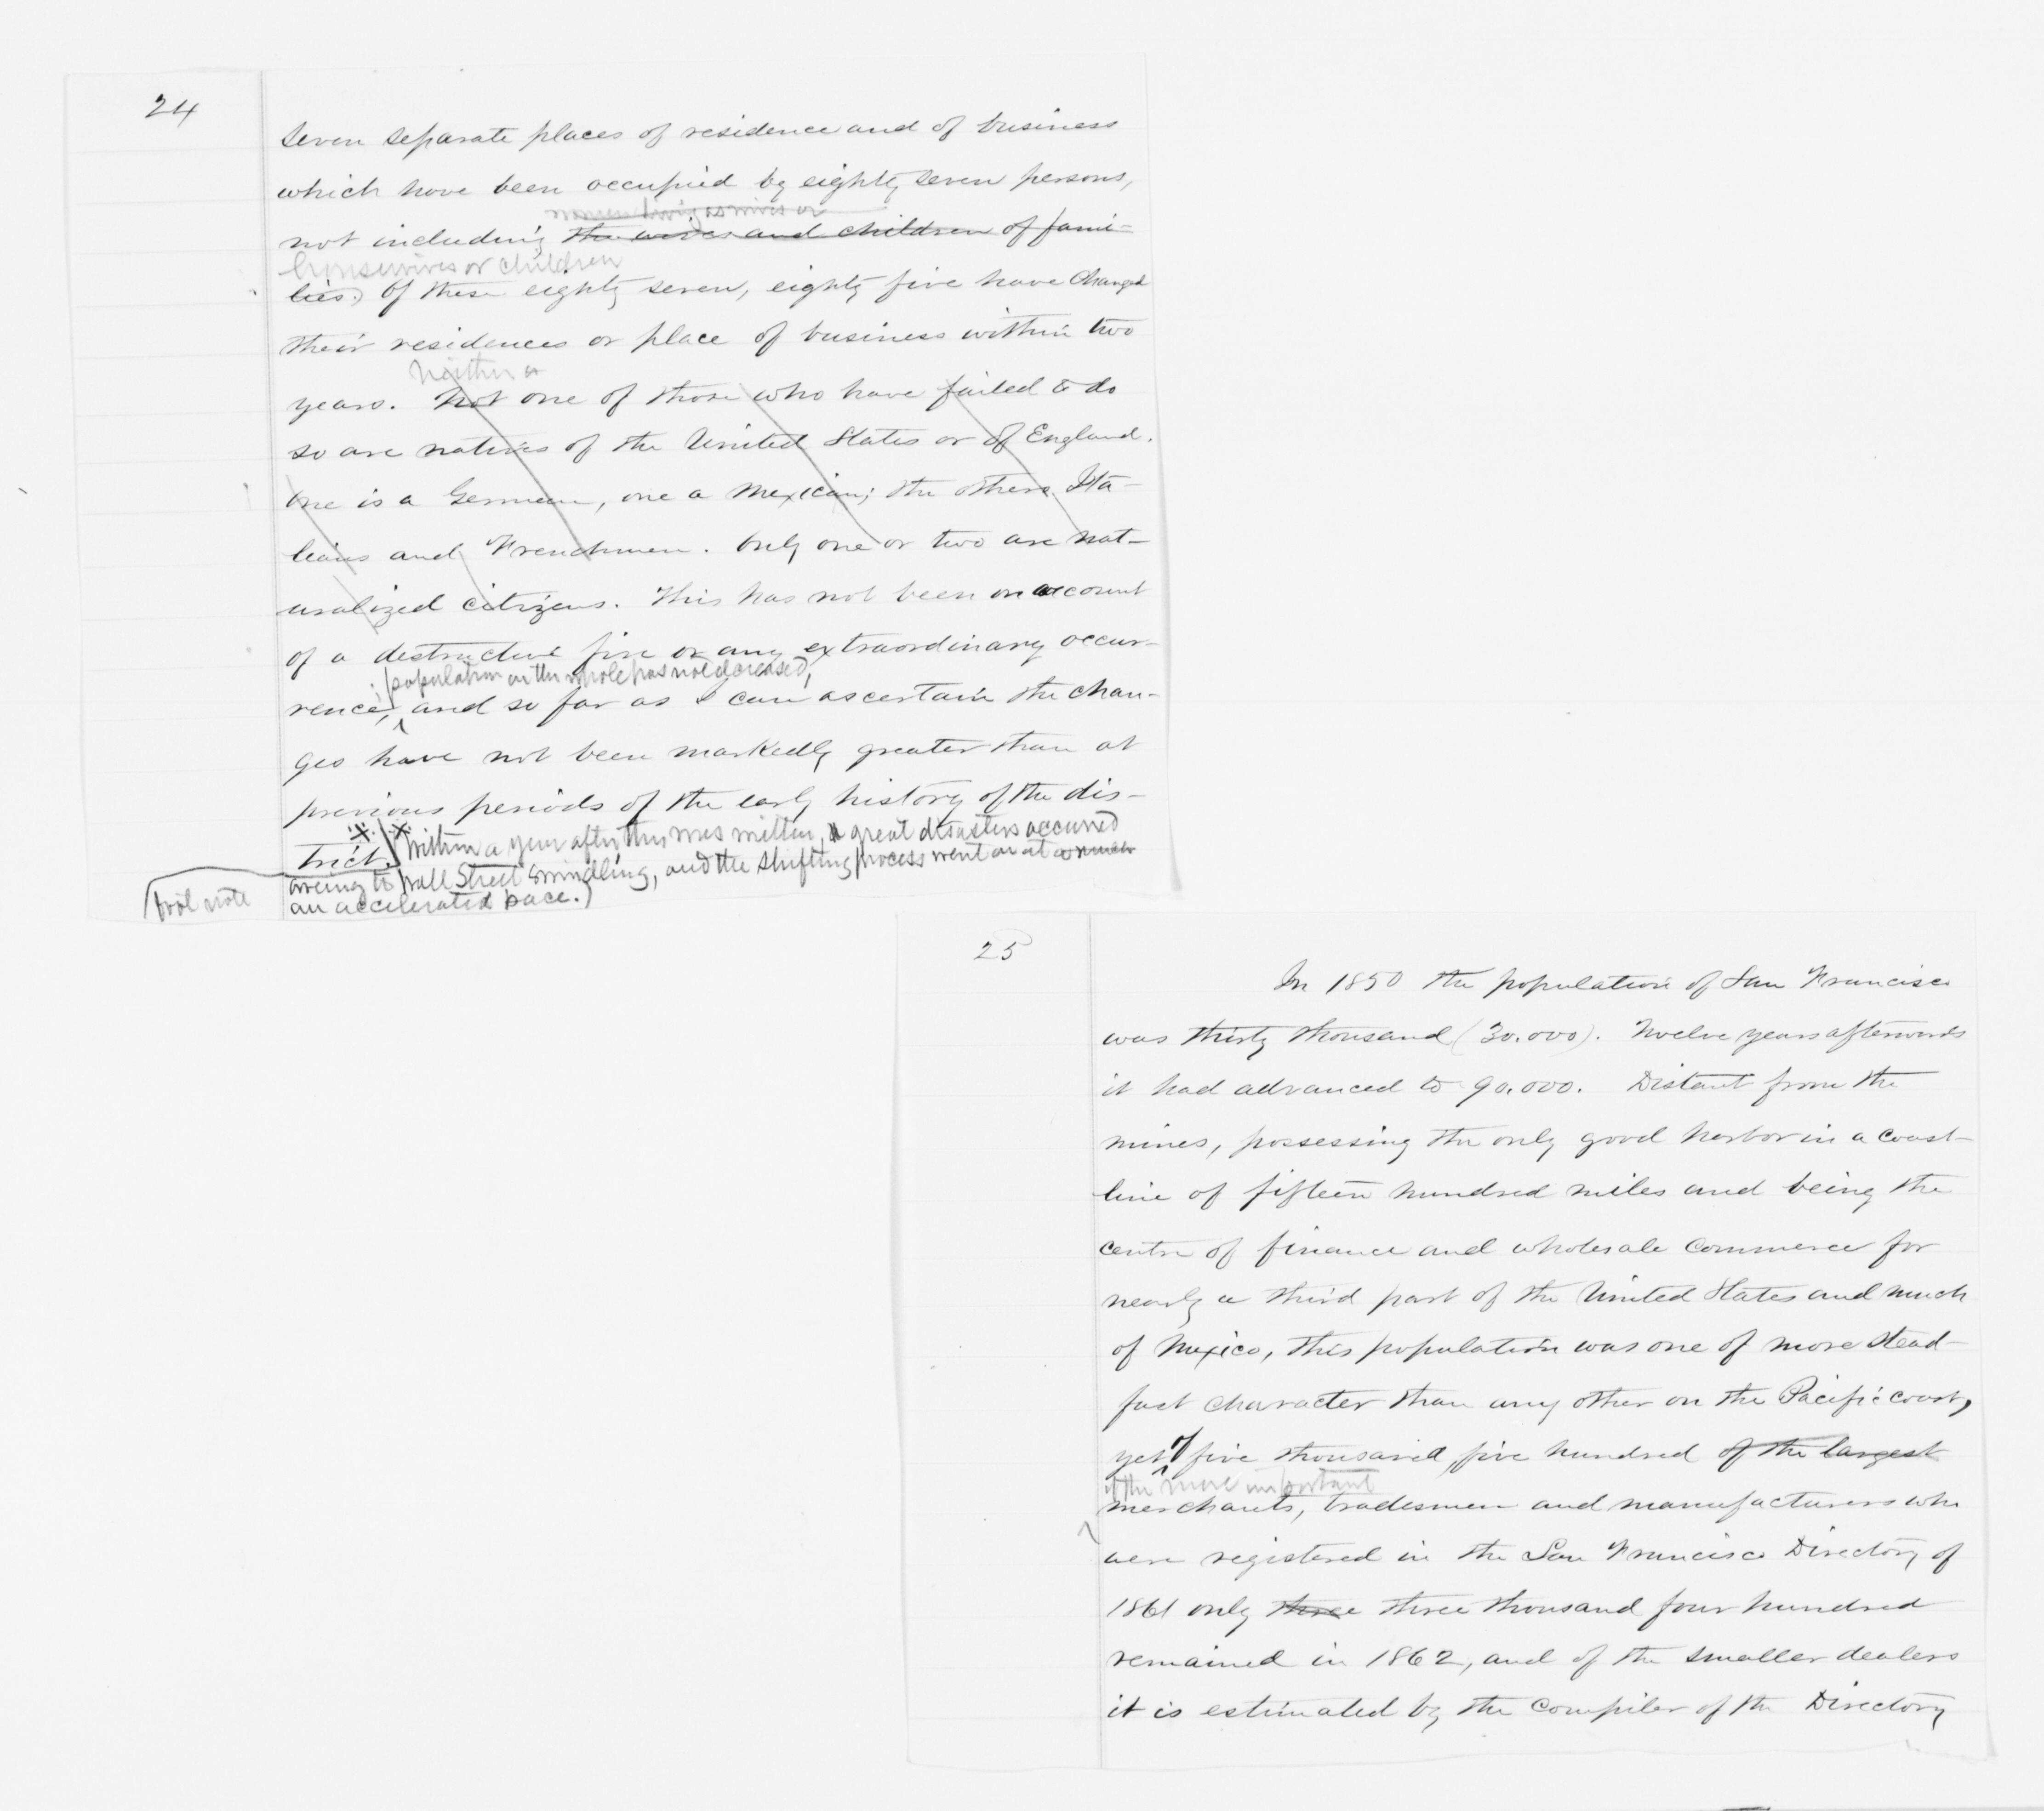 24
seven separate places of residence and of business
which have been occupied by eighty seven persons,
women living as wives or
not including the wives and children of fami-
wives or children
lies.) Of these eighty seven, eighty five have changed
their residences or place of business within two
Neither or
years. Not one of those who have failed to do
so are natives of the United States or of England.
One is a German, one a Mexican; the others Ita-
lians and Frenchmen. Only one or two are nat-
uralized citizens. This has not been on account
of a destructive fire or any extraordinary occur-
; population on the whole has not decreased,
rence, and so far as I can ascertain the chan-
ges have not been markedly greater than at
previous periods of the early history of the dis-
trict. Within a year after this was written, great disasters occurred
owing to Wall Street swindling, and the shifting process went on at
an accelerated pace.)
foot note
25
In 1850 the population of San Francisco
was thirty thousand (30.000). Twelve years afterwards
it had advanced to 90.000. Distant from the
mines, possessing the only good harbor in a coast-
line of fifteen hundred miles and being the
centre of finance and wholesale commerce for
nearly a third part of the United States and much
of Mexico, this population was one of more stead-
fast character than any other on the Pacific coast,
yet of five thousand five hundred of the largest
of the more important
merchants, tradesmen and manufacturers who
were registered in the San Francisco Directory of
1861 only three three thousand four hundred
remained in 1862, and of the smaller dealers
it is estimated by the compiler of the Directory